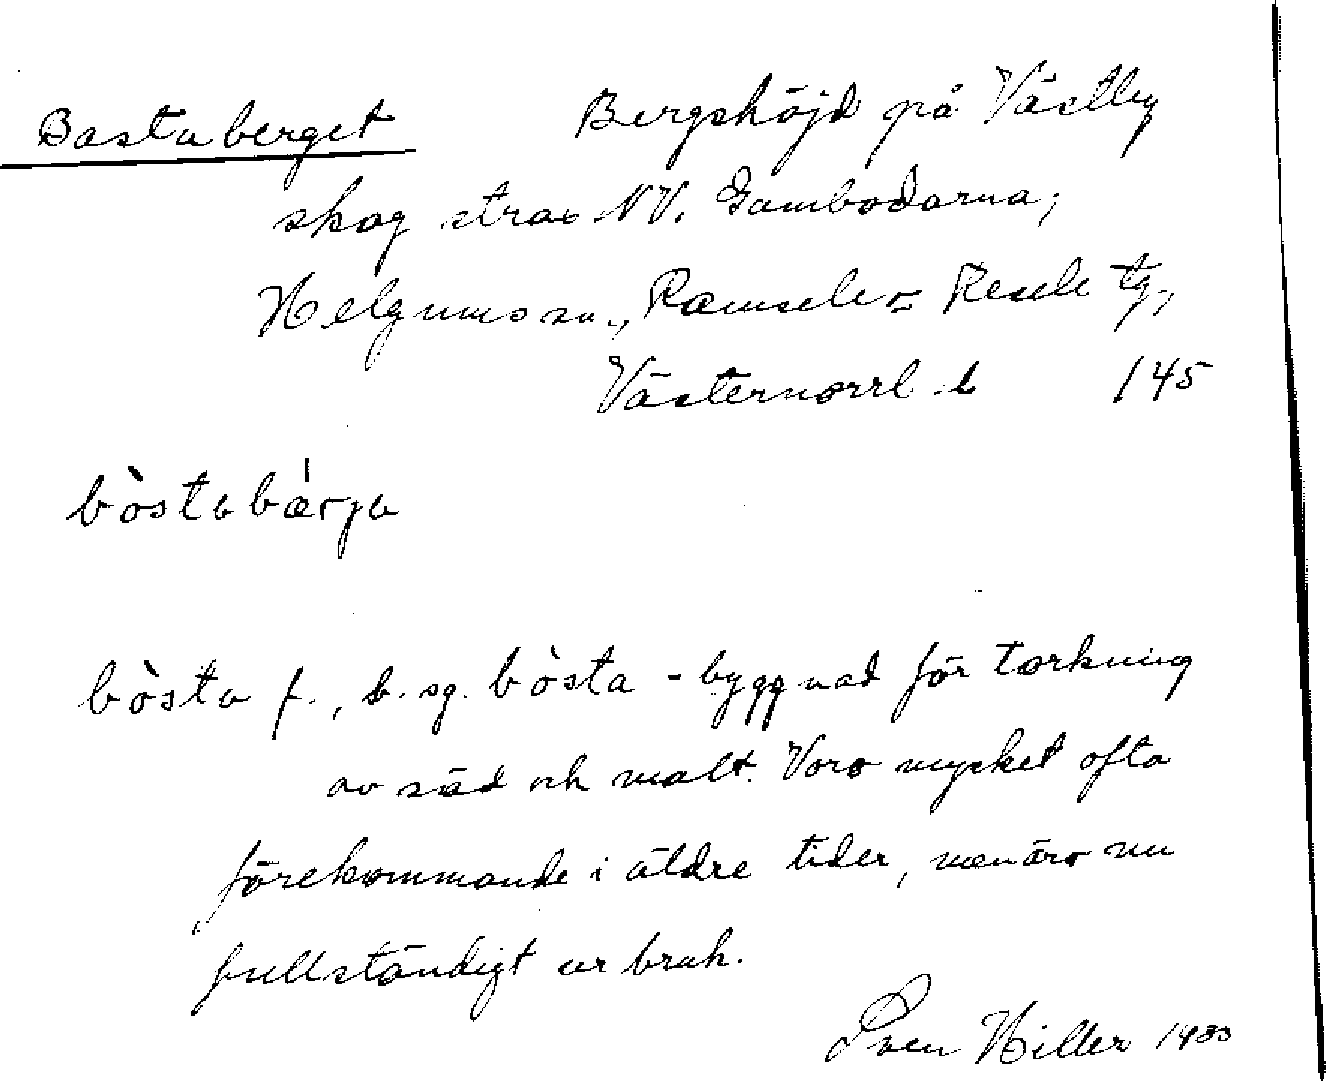 Bastuberget Bergshöjd på Västby
skog strax NV. Gambodarna;
Helgums sn., Ramsele o Resele tg.,
Västernorrl. l. 145
bòstabärja
bòsta f., b. sg. bòsta - byggnad för torkning
av säd och malt. Voro mycket ofta
förekommande i äldre tider, men äro nu
fullständigt ur bruk.
Sven Hiller 1930